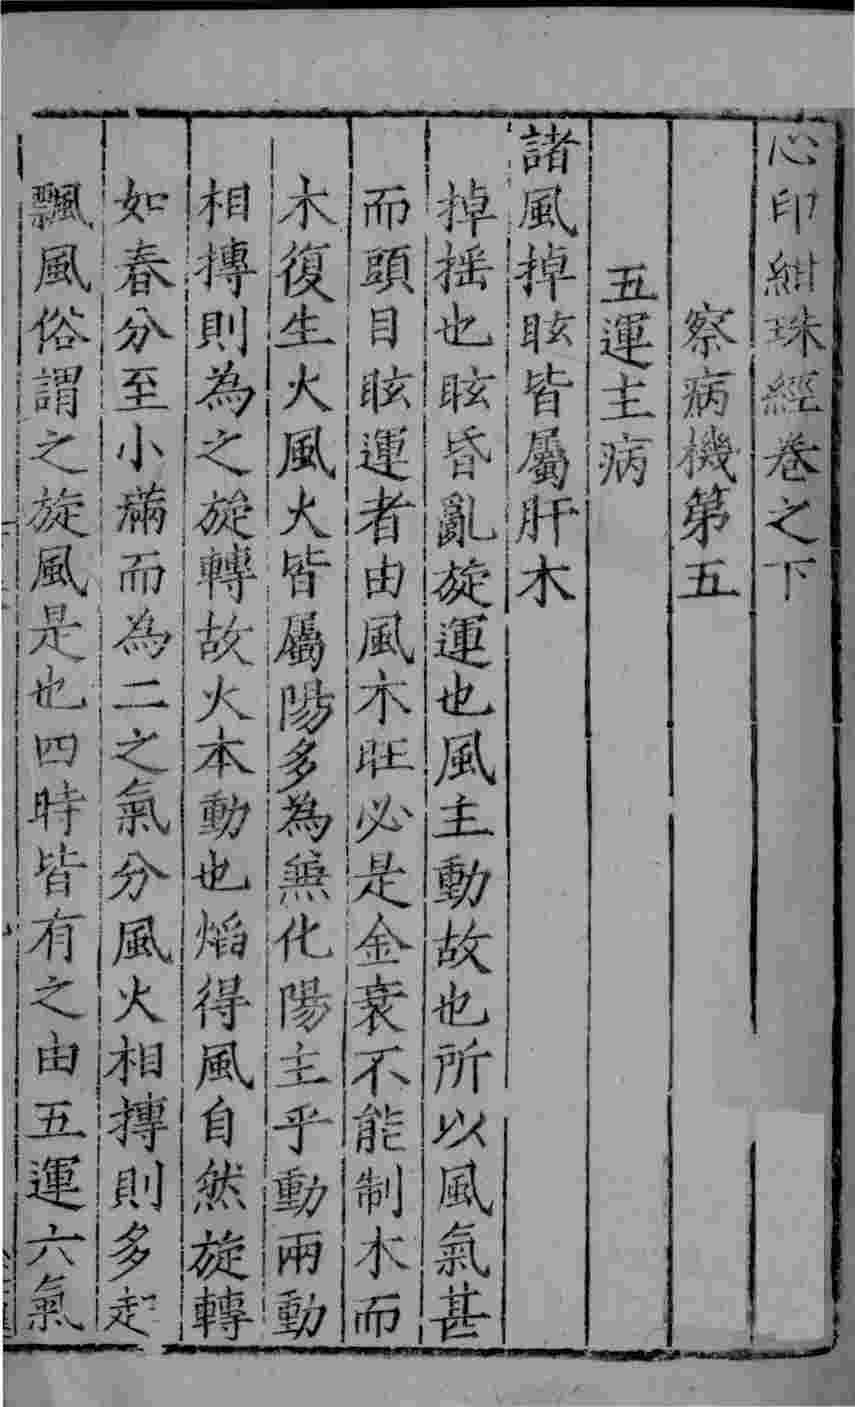 心印紺珠經卷之下
察病機第五
五運主病
諸風掉眩皆屬肝木
掉揺也眩昏亂旋運也風主動故也所以風氣甚
而頭目眩運者由風木旺必是金衰不能制木而
木復生火風火皆屬陽多為兼化陽主乎動兩動
相摶則為之旋轉故火本動也焰得風自然旋轉
如春分至小滿而為二之氣分風火相摶則多起
飄風俗謂之旋風是也四時皆有之由五運六氣